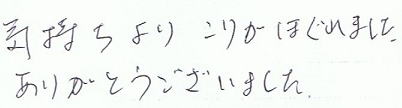 気持ちよりこりがほぐれました
ありがとうございました.